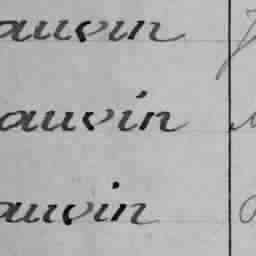 auvin
auvin
auvin